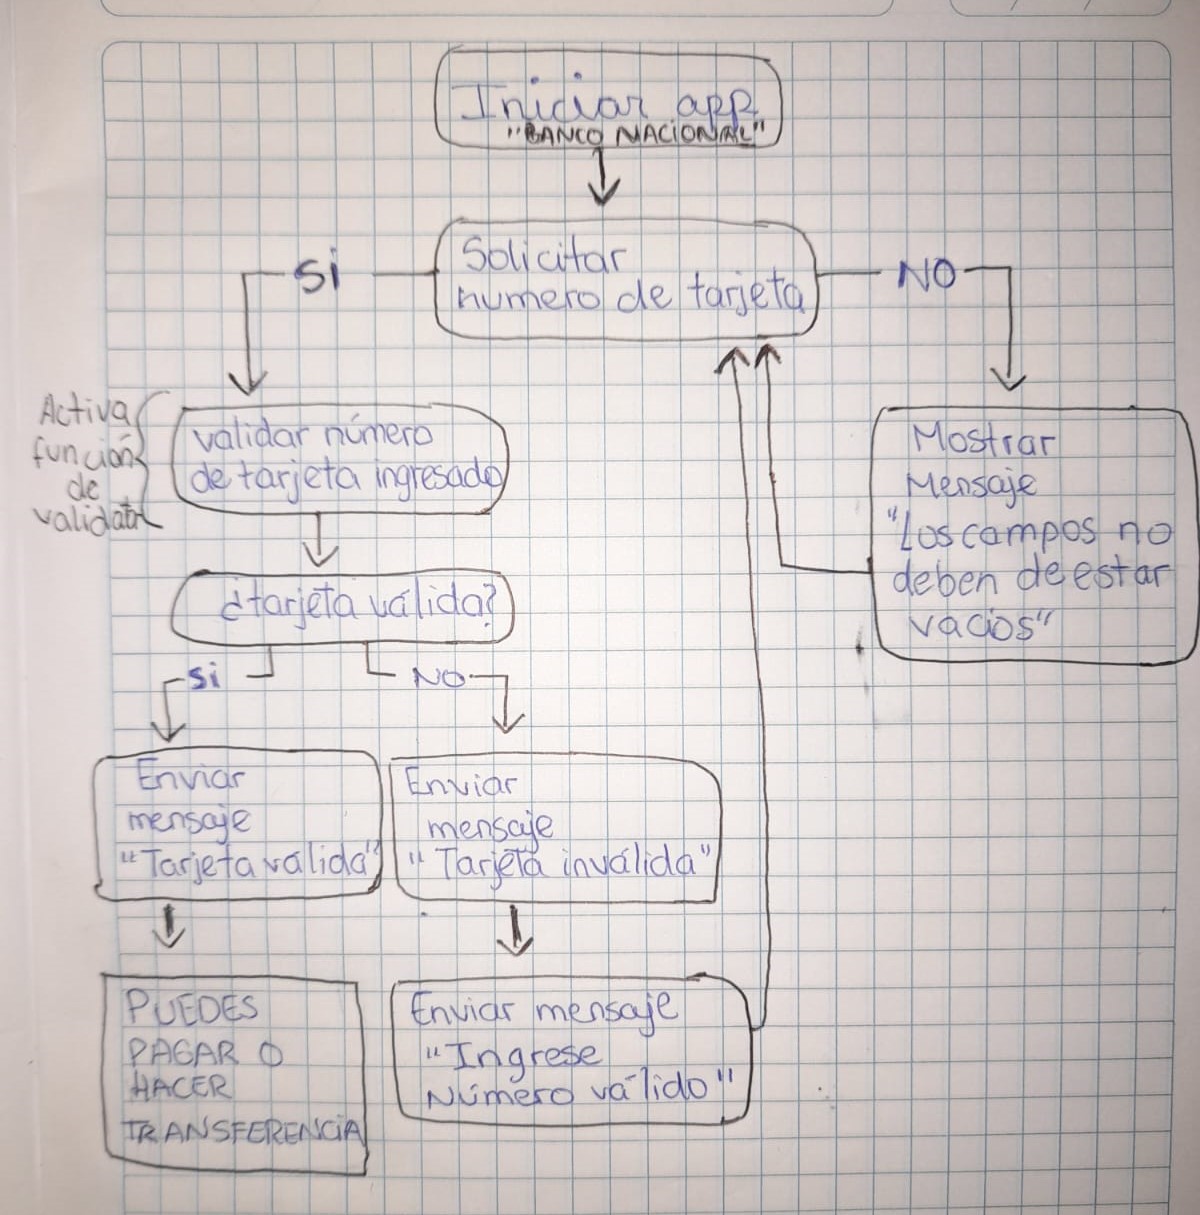 Iniciar app
"BANCO NACIONAL"
Solicitar
numero de tarjeta
Si
NO
Activa
función
de
validar
validar número
de tarjeta ingresado
Mostrar
Mensaje
"Los campos no
deben de estar
vacios"
¿tarjeta válida?
Si
NO
Enviar
mensaje
"Tarjeta válida"
Enviar
mensaje
"Tarjeta inválida"
PUEDES
PAGAR O
HACER
TRANSFERENCIA
Enviar mensaje
"Ingrese
Número válido"